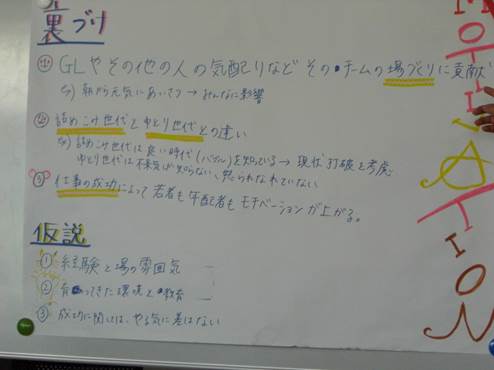 裏づけ
① GLやその他の人の気配りなど そのチームの場づくりに貢献
例) 朝から元気にあいさつ → みんなに影響
② 詰めこみ世代とゆとり世代との違い
例) 詰めこみ世代は良い時代(バブル)を知っている → 現状打破を考慮
ゆとり世代は不景気しか知らない、怒られなれていない
③ 仕事の成功によって若者も年配者もモチベーションが上がる。
仮説
① 経験と場の雰囲気
② 育ってきた環境と教育
③ 成功に関しては、やる気に差はない
MOTIVATION